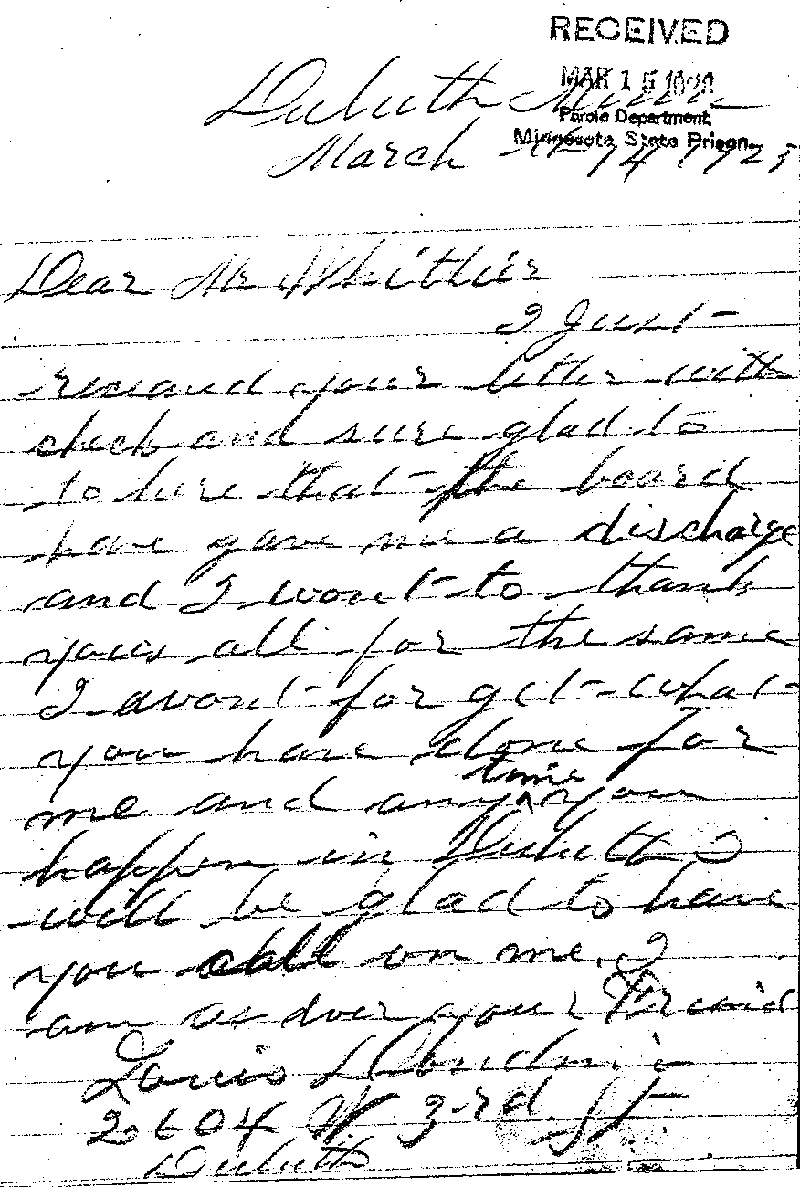 RECEIVED
MAR 15
Parole Department
Minnesota State Prison
Duluth Minn
March 14 192
Dear Mr Whittier
I Just
recieved your letter with
check and sure glad to
to hure that the board
have gave me a discharge
and I wont to thank
yous all for the same
I wont forget what
you have done for
me and any time you
happen in Duluth I
will be glad to have
you call on me. I
am as ever your Freind
Louis
2604 W 3rd St
Duluth